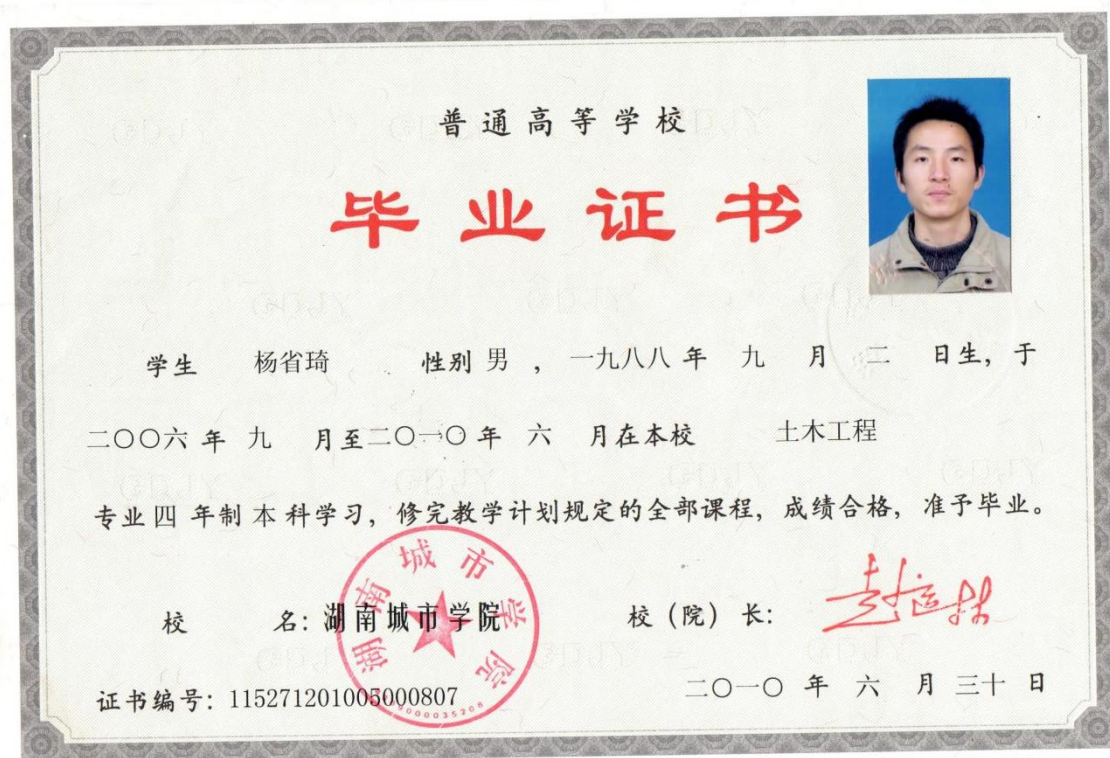 普通高等学校
毕业证书
学生 杨省琦 性别 男 ， 一九八八 年 九 月 二 日生，于
二〇〇六 年 九 月至二〇一〇 年 六 月在本校 土木工程
专业 四 年制 本 科学习，修完教学计划规定的全部课程，成绩合格，准予毕业。
湖南城市学院
校 名：湖南城市学院 校（院）长：
证书编号：115271201005000807 二〇一〇 年 六 月 三十 日